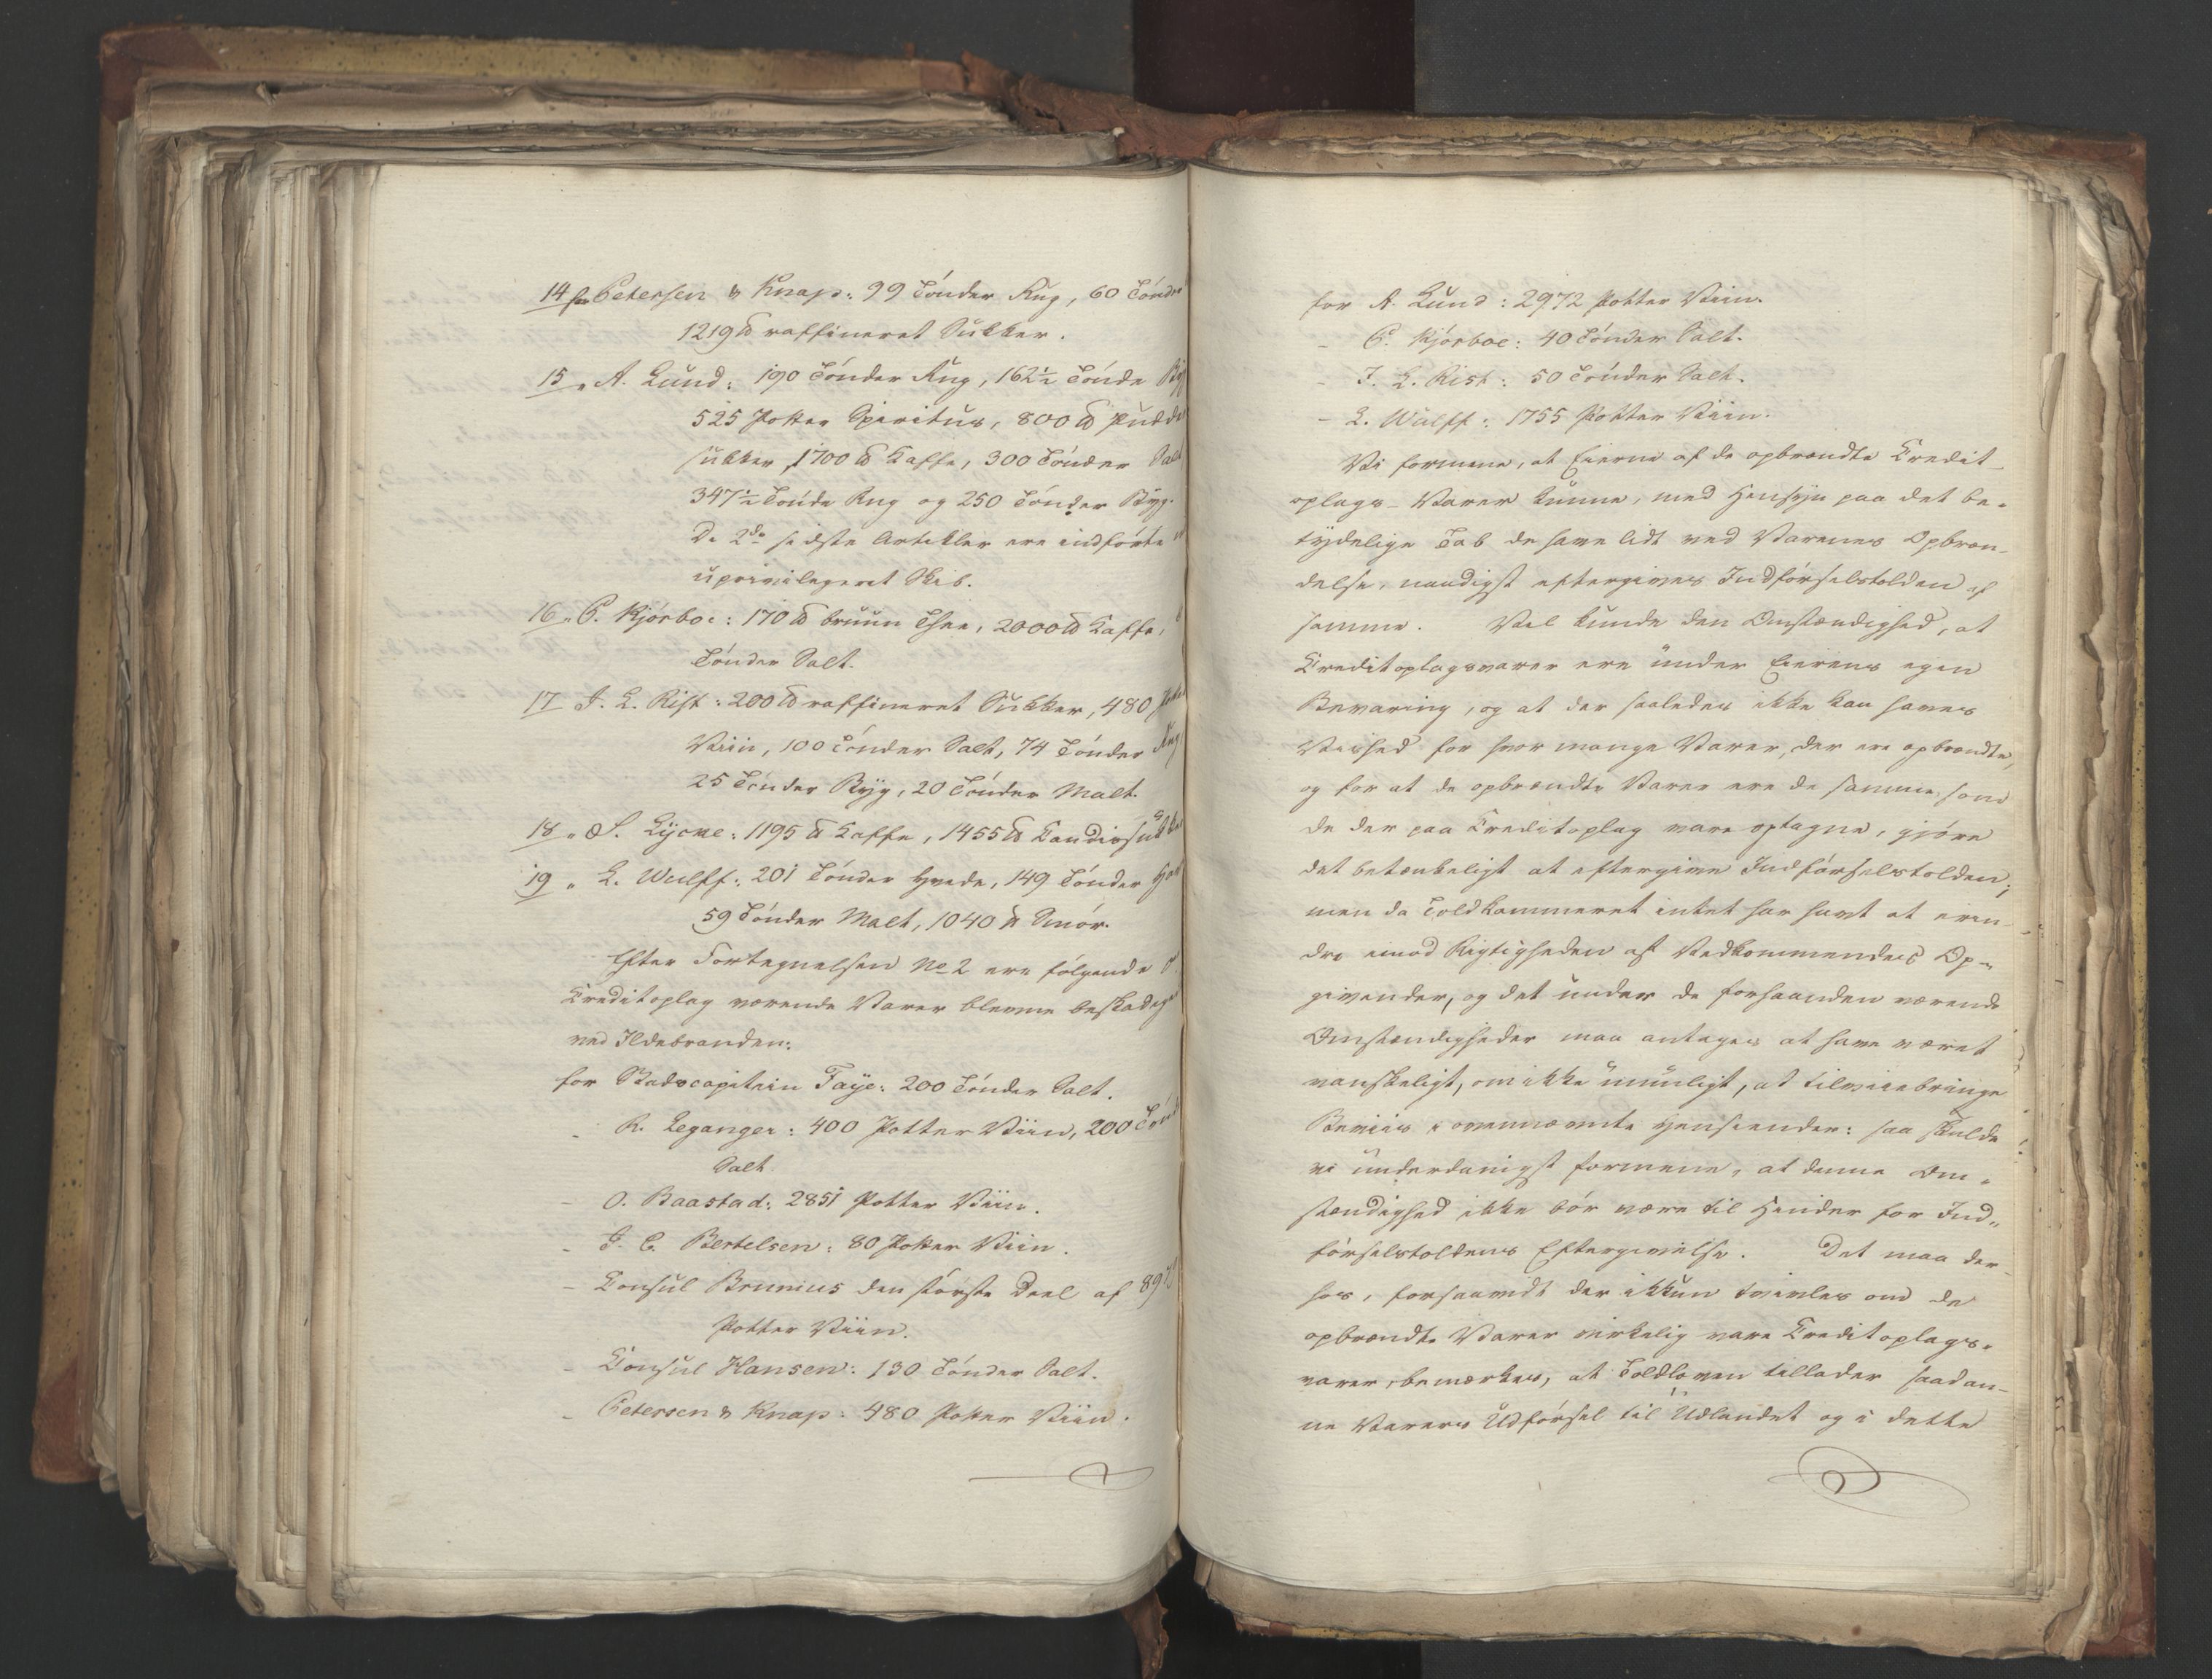 14 for Petersen & Knap: 99 Tönder Rug, 60 Tönder
1219 ℔ raffineret Sukker.
15 „ A. Lund: 190 Tönder Rug, 162½ Tönde Byg
525 Potter Spiritus, 800 ℔ Pudder
sukker, 1700 ℔ Kaffe, 300 Tönder Salt
347½ Tönde Rug og 250 Tönder Byg.
De 2de sidste Artikler ere indförte
upriviligeret Skib.
16 „ P. Kjörboe: 170 ℔ bruun Thee, 2000 ℔ Kaffe,
Tönder Salt.
17 J. L. Rist: 200 ℔ raffineret Sukker, 480 Potter
Viin, 100 Tönder Salt, 74 Tönder Rug
25 Tönder Byg, 20 Tönder Malt.
18 „ S. Lycke: 1195 ℔ Kaffe, 1455 ℔ Kandissukker
19 „ L. Wulff: 201 Tönder Hvede, 149 Tönder
59 Tönder Malt, 1040 ℔ Smör.
Efter Fortegnelsen No 2 ere fölgende
Creditoplag værende Varer blevne beskadiget
ved Ildebranden:
for Stadscapitain Faye: 200 Tönder Salt.
- R. Leganger: 400 Potter Viin, 200 Tönder
Salt
- O. Baastad: 2851 Potter Viin.
- J. C. Bertelsen: 80 Potter Viin.
- Consul Brunius den störste Deel af
Potter Viin.
- Consul Hansen: 130 Tönder Salt.
- Petersen & Knap: 480 Potter Viin.
for A. Lund: 2972 Potter Viin.
- P. Kjörboe: 40 Tönder Salt.
- J. L. Rist: 50 Tönder Salt.
- L. Wulff: 1755 Potter Viin.
Vi formene, at Eierne af de opbrændte Credit-
oplags-Varer kunne, med Hensyn paa det be-
tydelige Tab de have lidt ved Varenes Opbræn-
delse, naadigst eftergives Indförselstolden af
samme. Vel kunde den Omstændighed, at
Creditoplagsvarer ere under Eierens egen
Bevaring, og at der saaledes ikke kan haves
Vished for hvor mange Varer, der ere opbrændte,
og for at de opbrændte Varer ere de samme som
de der paa Creditoplag vare optagne, gjöre
det betænkeligt at eftergive Indförselstolden;
men da Toldkammeret intet har havt at erin-
dre imod Rigtigheden af Vedkommendes Op-
givender, og det under de forhaanden værende
Omstændigheder maa antages at have været
vanskeligt, om ikke umuligt, at tilveiebringe
Beviis i ovennævnte Henseender: saa skulde
vi underdanigst formene, at denne Om-
stændighed ikke bör være til Hinder for Ind-
förselstoldens Eftergivelse. Det maa der-
hos, forsaavidt der ikkun tvivles om de
opbrændte Varer virkelig vare Creditoplags-
varer, bemærkes, at Toldloven tillader saadan-
ne Varers Udförsel til Udlandet og i dette